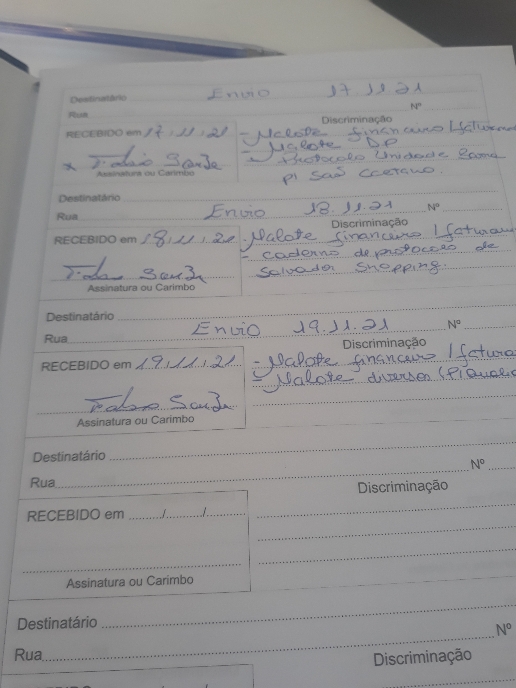 Destinatário Envio 17.11.21
Rua Nº
Discriminação
RECEBIDO em 17.11.21 - Malote financeiro / fatura
- Malote DP
- Protocolo Unidade
x Fabio
Assinatura ou Carimbo
p/ São Caetano.
Destinatário
Rua Envio 18.11.21 Nº
Discriminação
RECEBIDO em 18.11.21 - Malote financeiro / faturam
- caderno de protocolo de
Salvador Shopping.
Fabio
Assinatura ou Carimbo
Destinatário
Rua Envio 19.11.21 Nº
Discriminação
RECEBIDO em 19.11.21 - Malote financeiro / fatura
- Malote diversos (P/
Fabio
Assinatura ou Carimbo
Destinatário
Rua Nº
Discriminação
RECEBIDO em / /
Assinatura ou Carimbo
Destinatário
Rua Nº
Discriminação